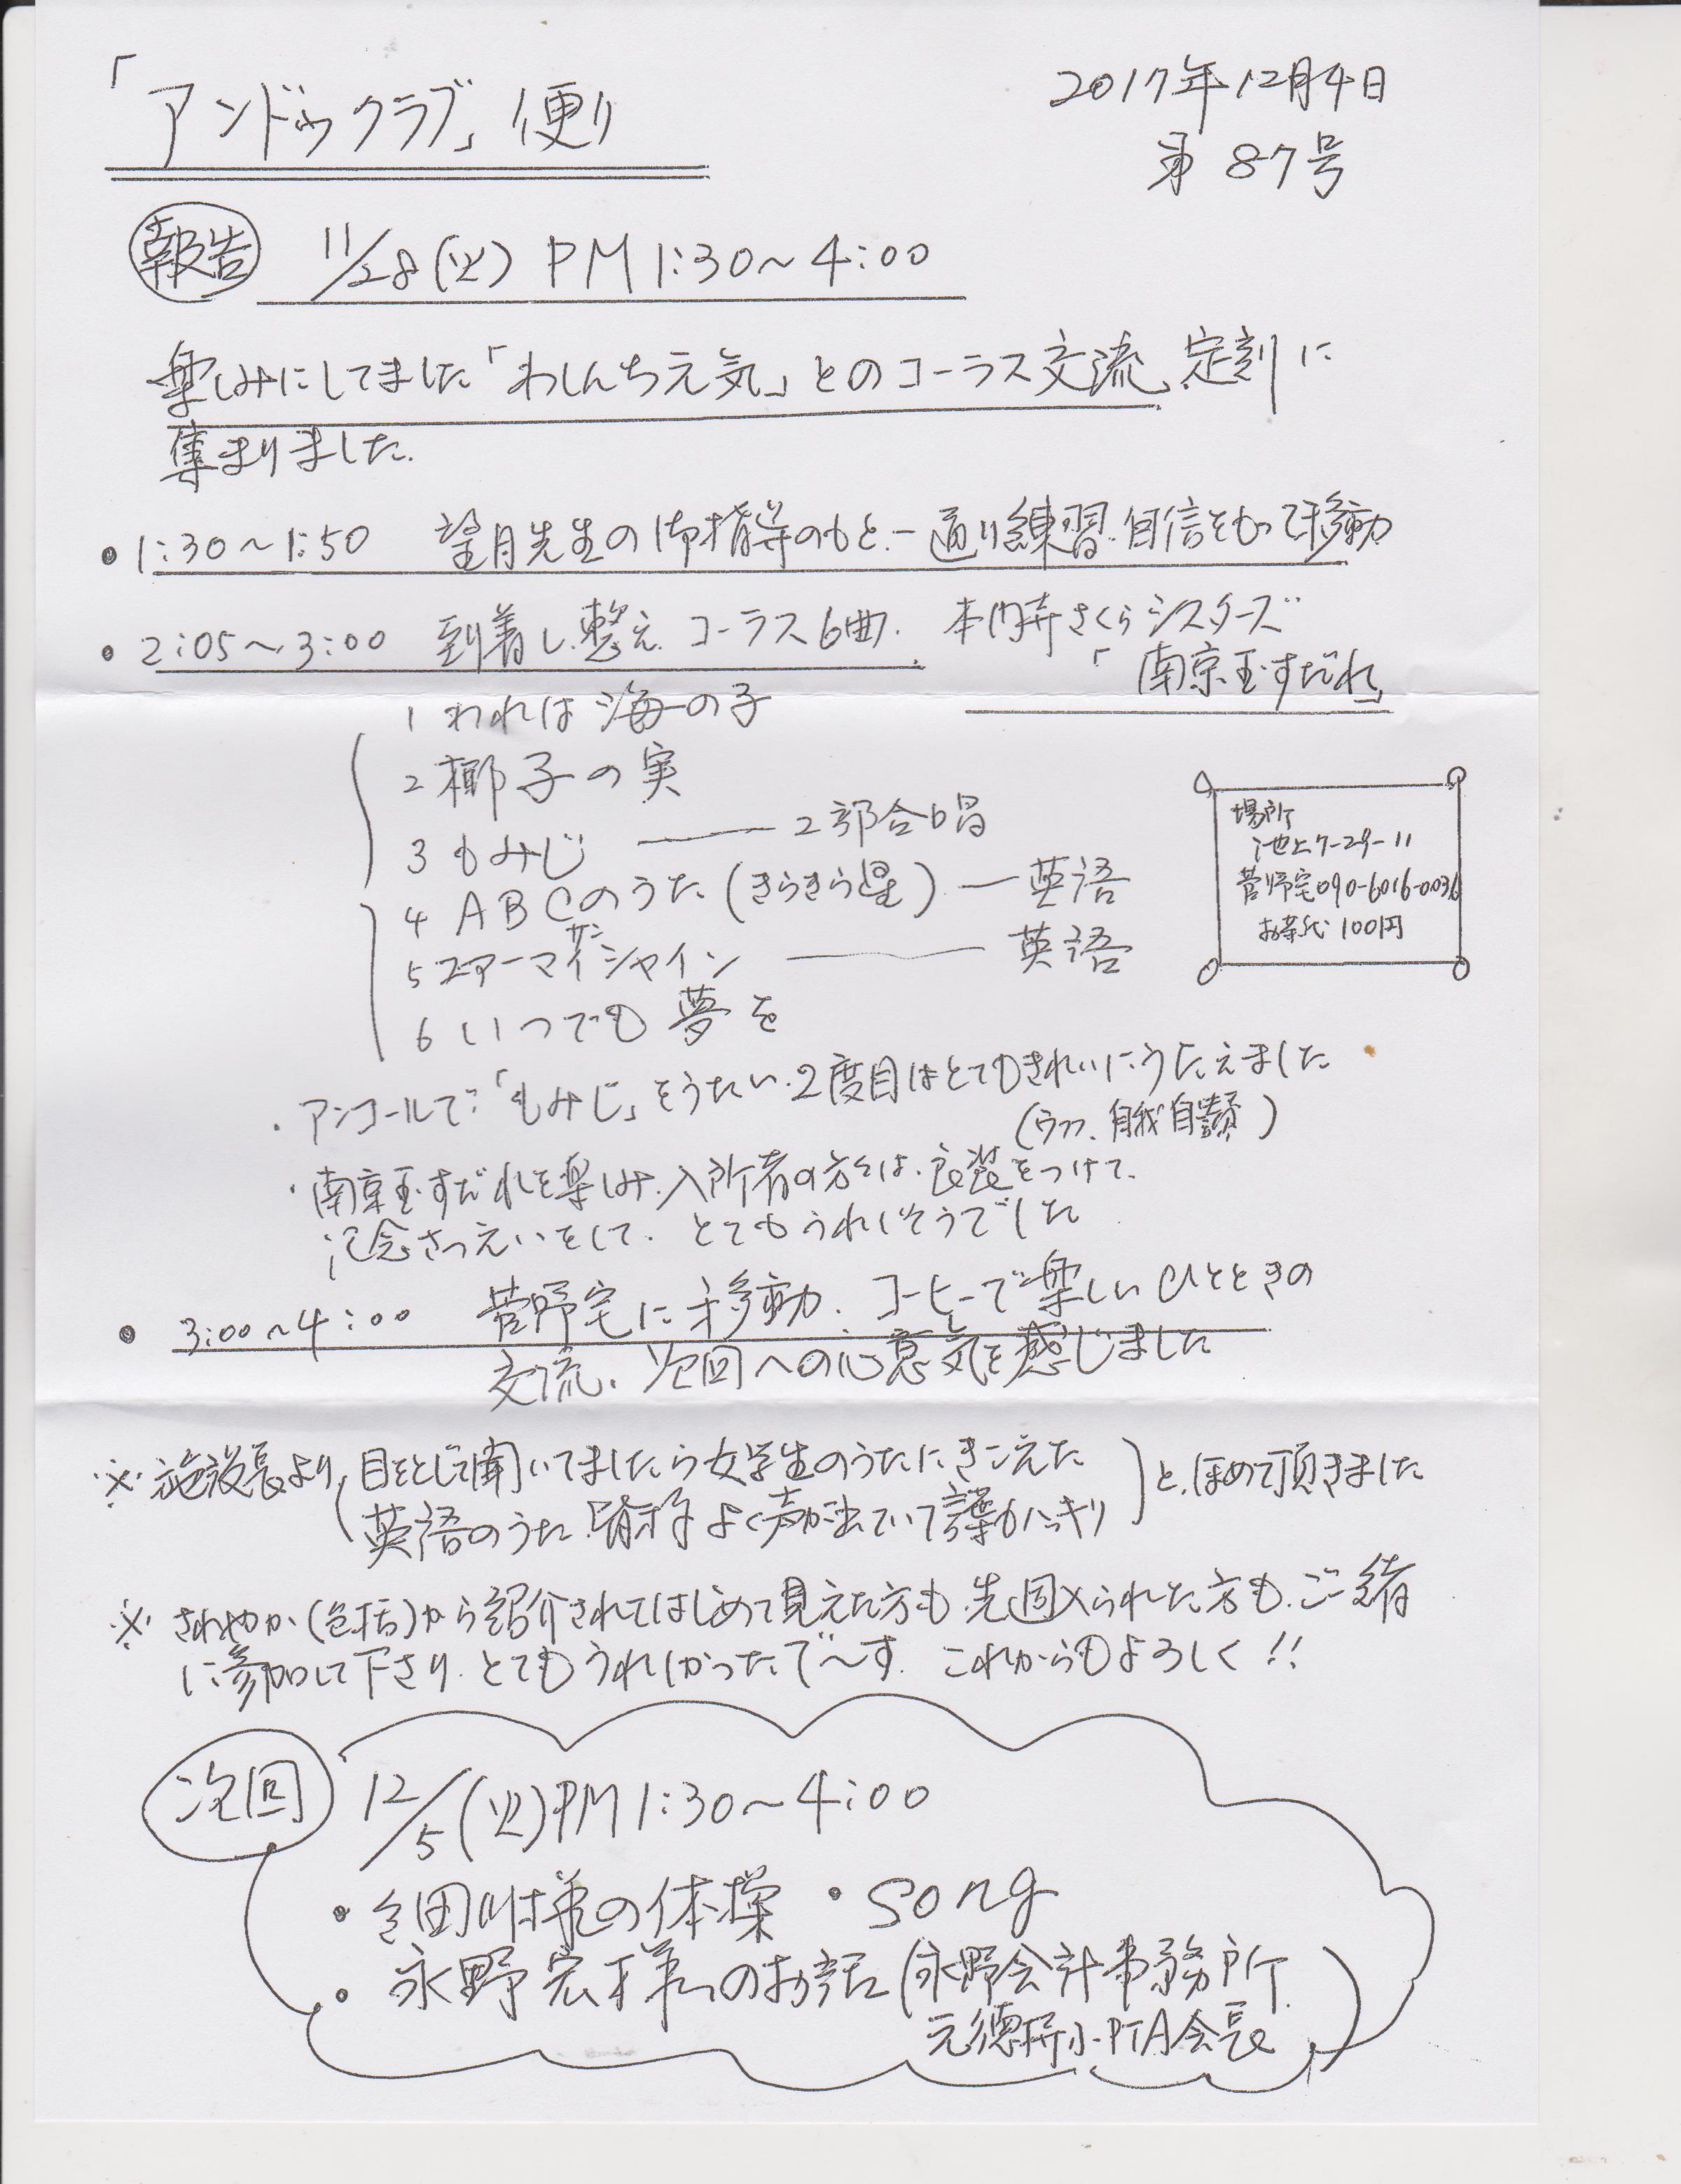 「アンドゥクラブ」便り
2017年12月4日
第87号
報告 11/28(火) PM1:30～4:00
楽しみにしてました「わしんち元気」とのコーラス交流、定刻に
集まりました.
• 1:30～1:50 望月先生の御指導のもと、一通り練習.自信をもって移動
• 2:05～3:00 到着し.整え.コーラス6曲. 本門寺さくらシスターズ
「南京玉すだれ」
1 われは海の子
2 椰子の実
3 もみじ ―― 2部合唱
4 ABCのうた(きらきら星) ― 英語
5 ユアーマイサンシャイン ―― 英語
6 いつでも夢を
場所
池上7-29-11
菅野宅090-6016-0036
お茶代 100円
・アンコールで「もみじ」をうたい.2度目はとてもきれいにうたえました
(ウフフ、自我自讃)
・南京玉すだれを楽しみ.入所者の方々は、衣装をつけて、
記念さつえいをして. とてもうれしそうでした
• 3:00～4:00 菅野宅に移動、コーヒーで楽しいひとときの
交流、次回への心意気を感じました
※ 施設長より 目をとじて聞いてましたら女学生のうたにきこえた
英語のうた よく声が出ていて言葉がハッキリ と、ほめて頂きました
※ さわやか(包括)から紹介されてはじめて見えた方も、先週入られた方も、ご一緒
に参加して下さり、とてもうれしかったで～す. これからもよろしく!!
次回 12/5(火)PM1:30～4:00
• 様の体操 • song
• 永野宏様のお話(永野会計事務所
元徳持小PTA会長)